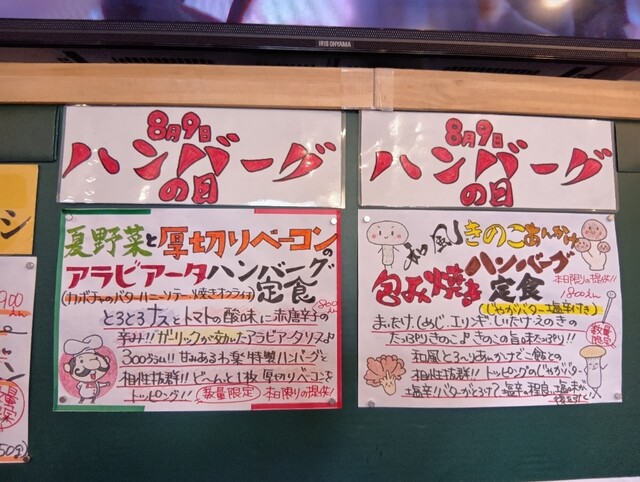 IRIS OHYAMA
8月9日
ハンバーグ
の日
8月9日
ハンバーグ
の日
夏野菜と厚切りベーコンの
アラビアータハンバーグ
定食
(カボチャのバターハニーソテー・焼きオクラ付)
とろとろナスとトマトの酸味に赤唐辛子の
辛み!!ガーリックが効いたアラビアータソース♪
300ぐらい!!甘みあるわ家特製ハンバーグと
相性抜群!!ど〜んと1枚厚切りベーコンを
トッピング!!
数量限定
本日限りの提供!!
和風きのこあんかけ
ハンバーグ
包み焼き
定食
本日限りの提供!!
1800えん
(じゃがバター塩辛付き)
まいたけ、しめじ、エリンギ、しいたけ、えのき
たっぷりきのこ♪きのこの旨味たっぷり!!
数量
限定
和風とろ〜りあんかけご飯との
相性抜群!!トッピングのじゃがバター
塩辛!!バターがとろけて塩辛の程良い塩味が
シ
900